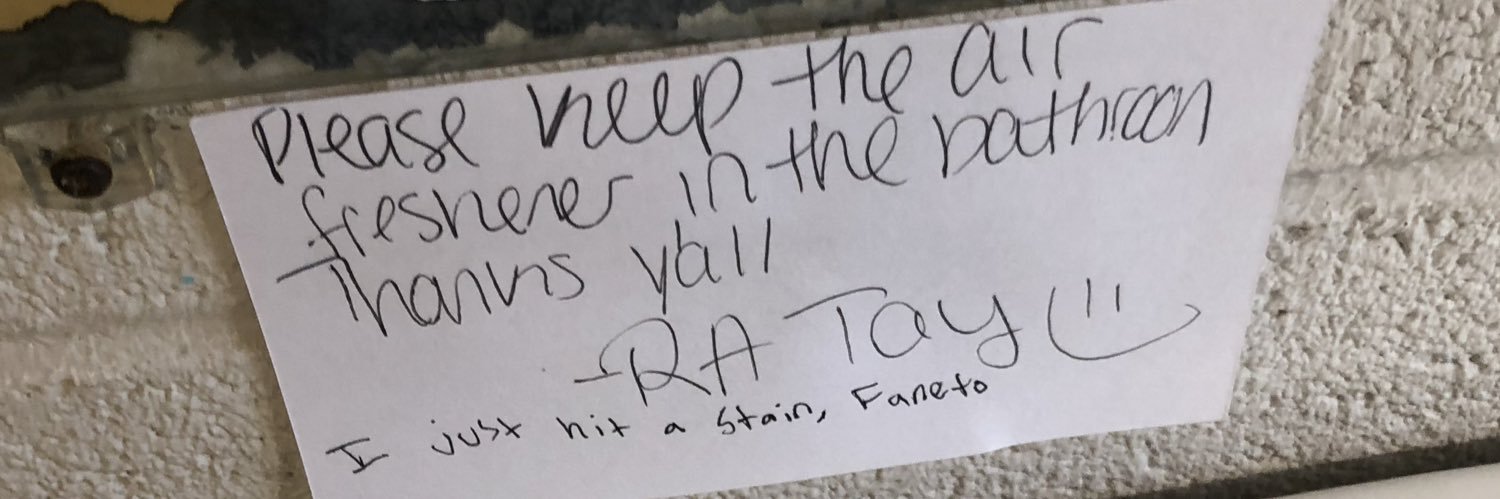 Please keep the air
freshener in the bathroom
Thanks y'all
-RA Tay
I just hit a stain, Faneto